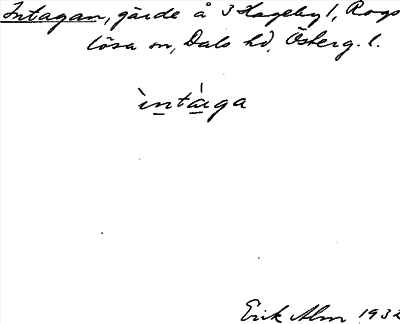 Intagan, gärde å 3 Hageby l, Rogs
lösa sn, Dals hd, Österg. l.
ìntàga
Erik Alm 1932